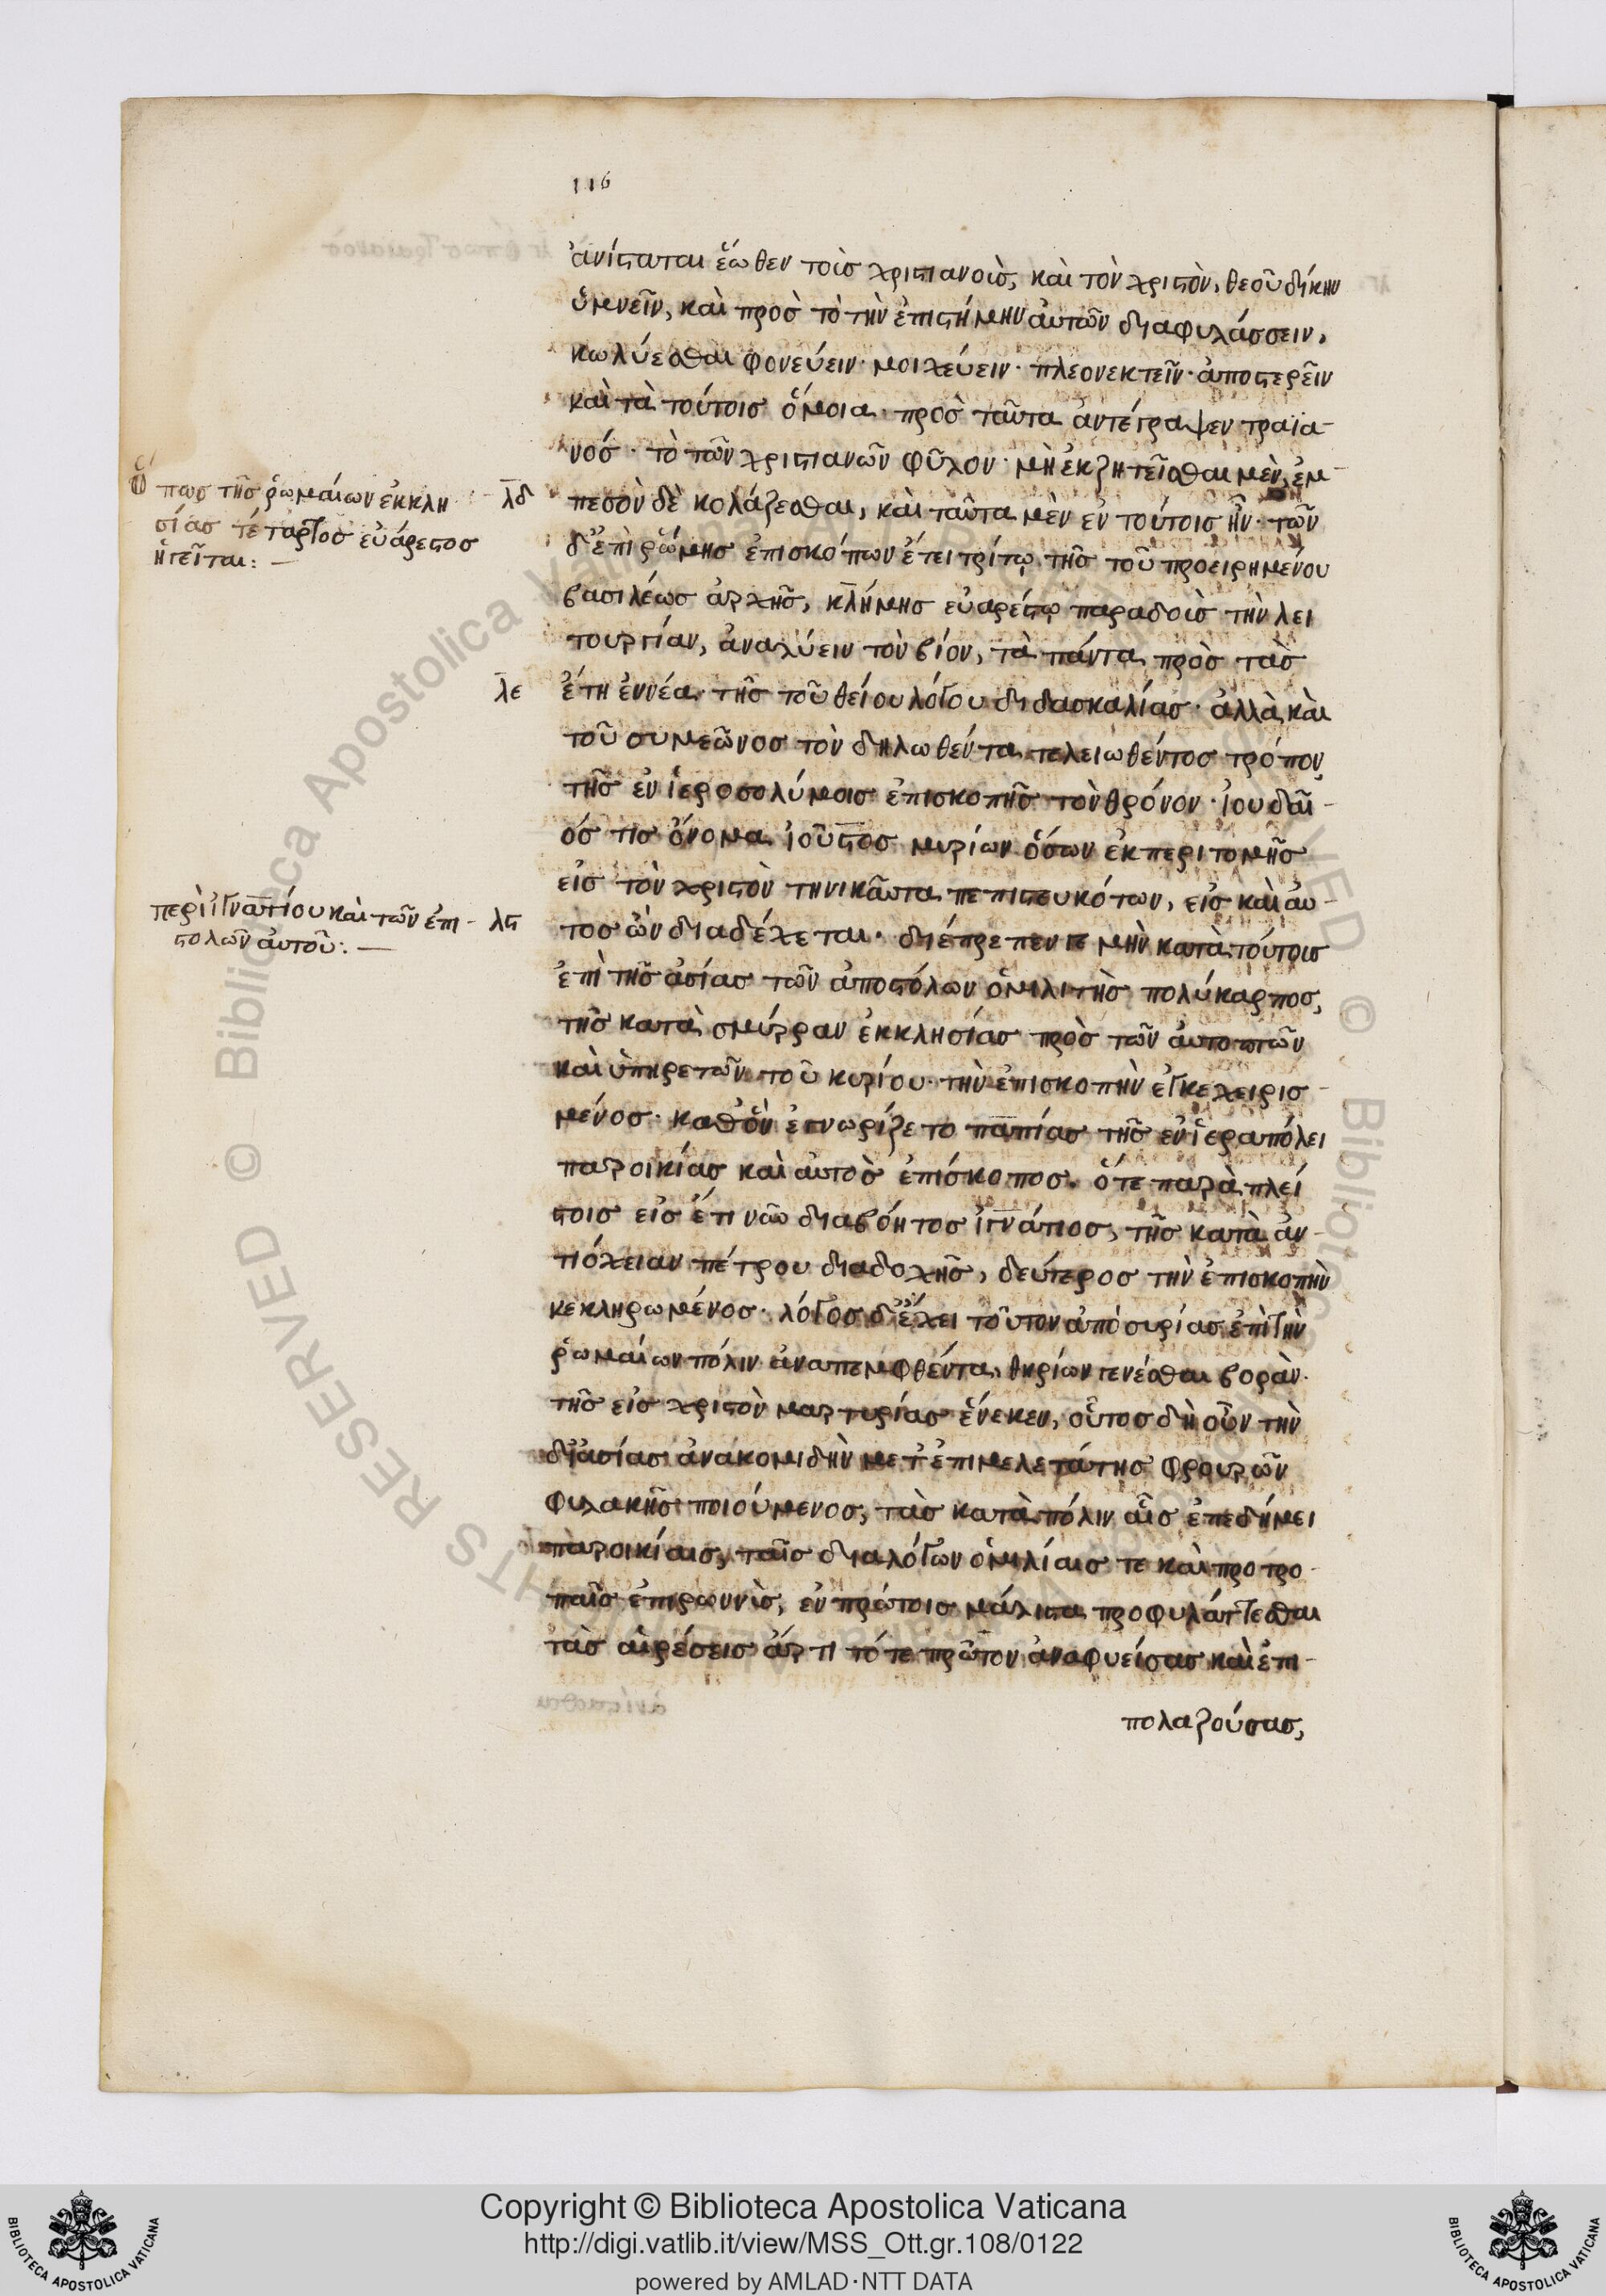 116
ἀνίσταται ἕωθεν τοῖς χριστιανοῖς, καὶ τὸν χριστὸν, θεοῦ δίκην
ὑμνεῖν, καὶ πρὸς τὸ τὴν ἐπιστήμην αὐτῶν διαφυλάσσειν,
κωλύεσθαι φονεύειν· μοιχεύειν· πλεονεκτεῖν· ἀποστερεῖν
καὶ τὰ τούτοις ὅμοια· πρὸς ταῦτα ἀντέγραψεν τραϊα-
νός· τὸ τῶν χριστιανῶν φῦλον· μὴ ἐκζητεῖσθαι μὲν, ἐμ-
πεσὸν δὲ κολάζεσθαι, καὶ ταῦτα μὲν ἐν τούτοις ἦν· τῶν
δ' ἐπὶ ῥώμης ἐπισκόπων ἔτει τρίτῳ τῆς τοῦ προειρημένου
βασιλέως ἀρχῆς, κλήμης εὐαρέστῳ παραδοὶς τὴν λει
τουργίαν, ἀναλύειν τὸν βίον, τὰ πάντα πρὸς τὰς
ἔτη ἐννέα· τῆς τοῦ θείου λόγου διδασκαλίας· ἀλλὰ καὶ
τοῦ συμεῶνος τὸν δηλωθέντα τελειωθέντος τρόπον
τῆς ἐν ἱεροσολύμοις ἐπισκοπῆς τὸν θρόνον· ἰουδαῖ-
ός τις ὄνομα ἰοῦστος μυρίων ὅσων ἐκ περιτομῆς
εἰς τὸν χριστὸν τηνικαῦτα πεπιστευκότων, εἷς καὶ αὐ-
τος ὢν διαδέχεται· διέπρεπεν γε μὴν κατὰ τούτοις
ἐπὶ τῆς ἀσίας τῶν ἀποστόλων ὁμιλιτὴς πολύκαρπος,
τῆς κατὰ σμύρναν ἐκκλησίας πρὸς τῶν αὐτοπτῶν
καὶ ὑπηρετῶν τοῦ κυρίου· τὴν ἐπισκοπὴν ἐγκεχειρισ-
μένος· καθ' ὃν ἐγνωρίζετο παπίας τῆς ἐν ἱεραπόλει
παροικίας καὶ αὐτὸς ἐπίσκοπος. ὅτε παρὰ πλεί
στοις εἰς ἔτι νῦν διαβόητος ἰγνάτιος, τῆς κατὰ ἀν-
τιόχειαν πέτρου διαδοχῆς, δεύτερος τὴν ἐπισκοπὴν
κεκληρωμένος· λόγος δ' ἔχει τοῦτον ἀπὸ συρίας ἐπὶ τὴν
ῥωμαίων πόλιν ἀναπεμφθέντα, θηρίων γενέσθαι βορὰν·
τῆς εἰς χριστὸν μαρτυρίας ἕνεκεν, οὗτος δὴ οὖν τὴν
δι' ἀσίας ἀνακομιδὴν μετ' ἐπιμελεστάτης φρουρῶν
φυλακῆς ποιούμενος, τὰς κατὰ πόλιν αἷς ἐπεδήμει
παροικίαις, ταῖς διαλόγων ὁμιλίαις τε καὶ προτρο-
παῖς ἐπιρωννὺς, ἐν πρώτοις μάλιστα προφυλάττεσθαι
τὰς αἱρέσεις ἄρτι τότε πρῶτον ἀναφυείσας καὶ ἐπι-
πολαζούσας,
ὅπως τῆς ῥωμαίων ἐκκλη
σίας τέταρτος εὐάρεστος
ἡγεῖται: —
λδ
λε
περὶ ἰγνατίου καὶ τῶν ἐπι-
στολῶν αὐτοῦ: —
λϛ
Copyright © Biblioteca Apostolica Vaticana
http://digi.vatlib.it/view/MSS_Ott.gr.108/0122
powered by AMLAD·NTT DATA